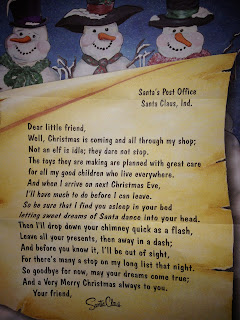 Santa's Post Office
Santa Claus, Ind.
Dear little friend,
Well, Christmas is coming and all through my shop;
Not an elf is idle; they dare not stop.
The toys they are making are planned with great care
for all my good children who live everywhere.
And when I arrive on next Christmas Eve,
I'll have much to do before I can leave.
So be sure that I find you asleep in your bed
letting sweet dreams of Santa dance into your head.
Then I'll drop down your chimney quick as a flash,
Leave all your presents, then away in a dash;
And before you know it, I'll be out of sight,
For there's many a stop on my long list that night.
So goodbye for now, may your dreams come true;
And a Very Merry Christmas always to you.
Your friend,
Santa Claus